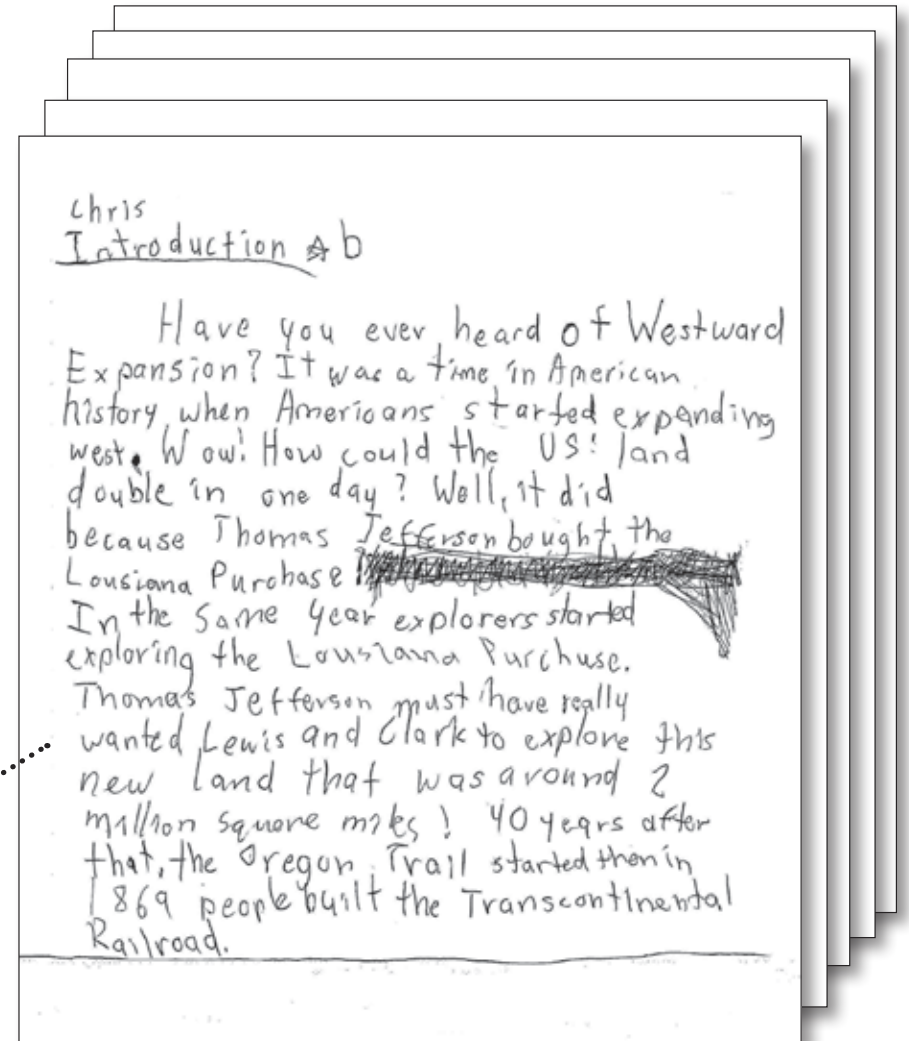 Chris
Introduction ☆ b
Have you ever heard of Westward
Expansion? It was a time in American
history when Americans started expanding
west. Wow! How could the US! land
double in one day? Well, it did
because Thomas Jefferson bought the
Lousiana Purchase
In the same year explorers started
exploring the Lousiana Purchuse.
Thomas Jefferson must have really
wanted Lewis and Clark to explore this
new land that was around 2
million square miles! 40 years after
that, the Oregon Trail started then in
1869 people built the Transcontinental
Railroad.